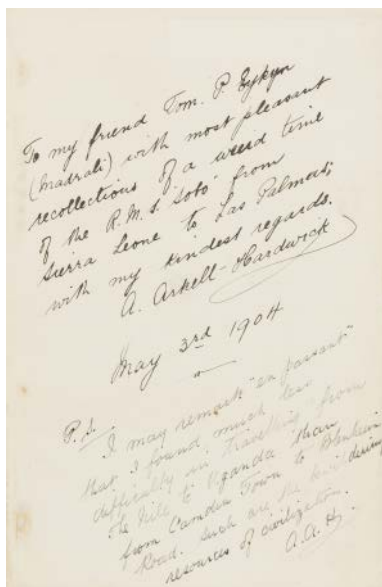 To my friend Tom. P. Eykyn
(Madrali) with most pleasant
recollections of a weird time
of the R.M.S. "Soto" from
Sierra Leone to Las Palmas;
with my kindest regards.
A. Arkell-Hardwick
May 3rd 1904
P.S.
I may remark "en passant"
that I found much less
difficulty in "travelling" from
the Nile to Uganda than
from Camden Town to
Road. Such are the bewildering
resources of civilization.
A.A.H.